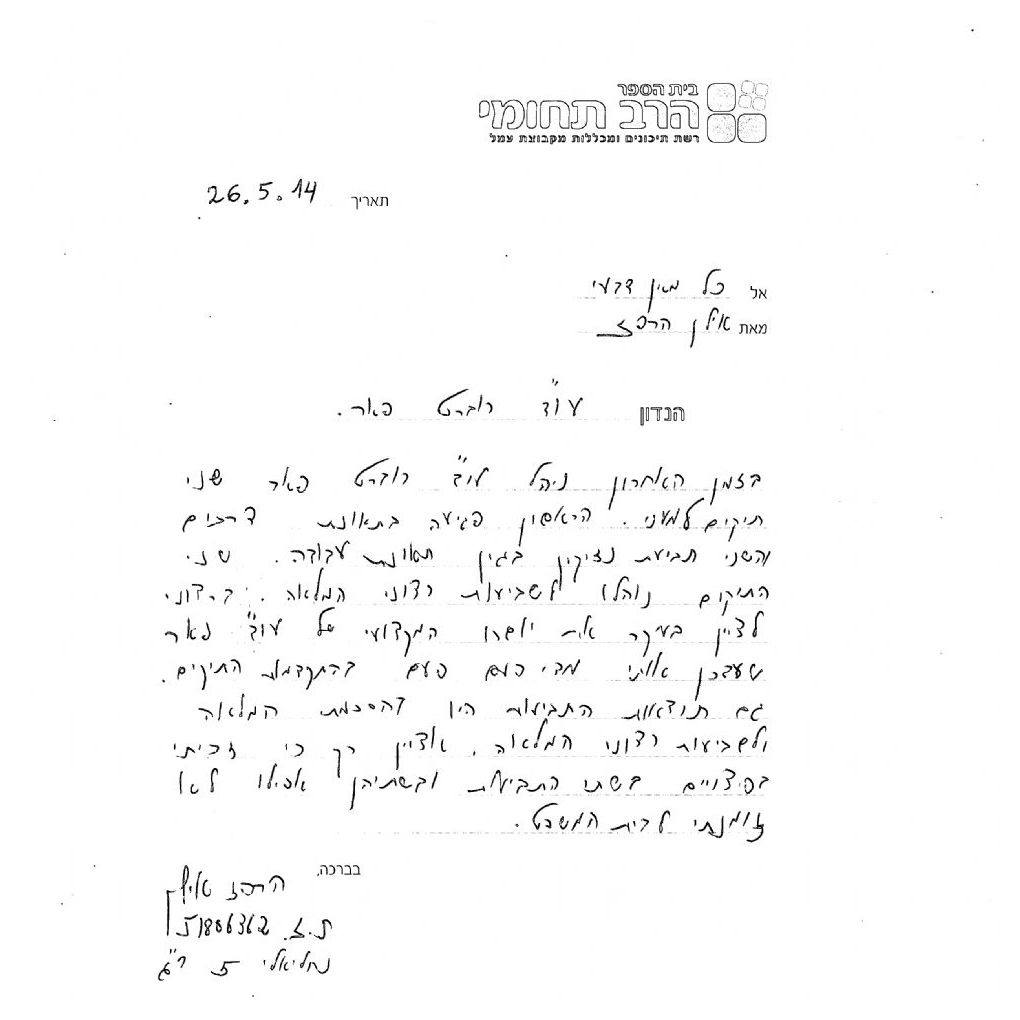 בית הספר
הרב תחומי
רשת תיכונים ומכללות מקבוצת עמל
תאריך 26.5.14
אל כל מאין דבעי
מאת אילן הרפז
הנדון עו"ד רוברט פאר.
בזמן האחרון ניהל עו"ד רוברט פאר שני
תיקים למעני. הראשון פגיעה בתאונת דרכים
והשני תביעת נזיקין בגין תאונת עבודה. שני
התיקים נוהלו לשביעות רצוני המלאה. ברצוני
לציין בעיקר את יושרו המקצועי של עו"ד פאר
שעדכן אותי מדי פעם בפעם בהתקדמות התיקים.
גם תוצאות התביעות היו להסכמת המלאה
ולשביעות רצוני המלאה. אציין רק כי זכיתי
בפיצויים בשתי התביעות ובשתיהן אפילו לא
זומנתי לבית המשפט.
בברכה,
הרפז אילן
ת.ז. 51806362
נחליאלי 5 ר"ג